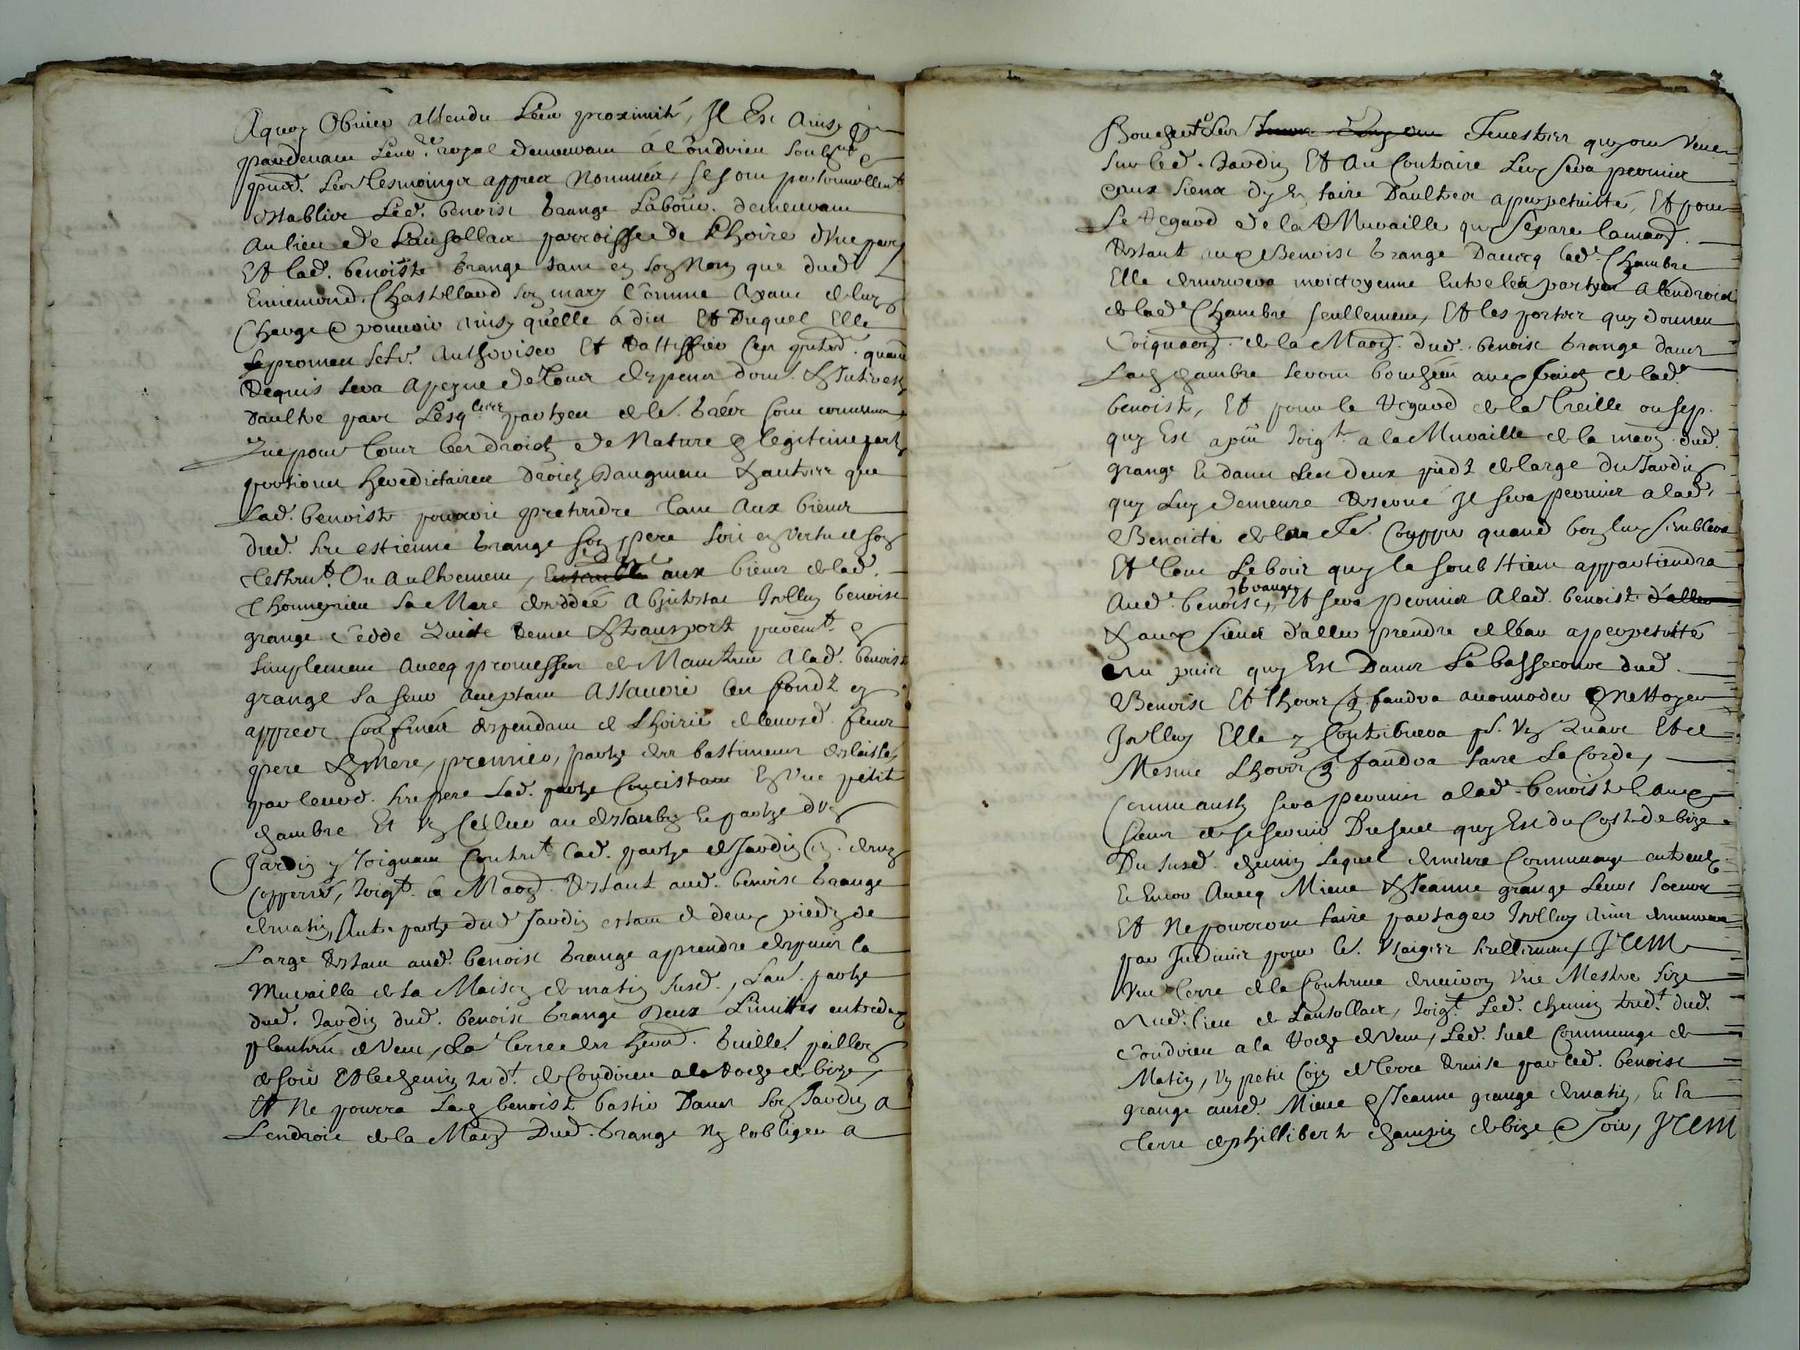 Aquoy Obvier attendu Leur proximité, Il Est Ainsy que
pardevant Leno.re royal demeurant à Condrieu soubz.né &
pnts. Les tesmoingz appres Nommés, se sont personnellemt
establys Led. benoist Grange Labour. demeurant
au lieu de Lansollar parroisse de Lhoire d'Une part
Et lad. benoiste Grange tant en son Nom que dud.
Ennemond Chastellard son mary Comme Ayant de luy
Charge & pouvoir ainsy quelle à dit Et Duquel Elle
se promet se fe. Authoriser Et Rattiffier Ces pntes. quand
Requis sera Apeyne de tous despens dom. & Interestz
Daultre part Lesqlles partyes de le. Gréz
Que pour tous Les droictz de Nature & legitime part
portions hereditaires droictz Daugment & autres que
Lad. benoiste pourroit prétendre tant Aux biens
dud. feu estienne Grange son père soit en Vertu de son
testamt. Ou Aultrement, aux biens de lad.
sa Mere décédée Abintestat Icelluy benoist
grange Cedde Quitte Remet & transporte puremt. &
simplement Avecq promesse de Maintenir A lad. benoiste
grange sa seur Aceptant Assavoir Les fondz cy
appres Confinés despendant de Lhoirie de leursd. feux
pere & Mere, premier, partye des bastiments delaissés
par leurd. feu pere Lad. partye Concistant En Une petite
chambre Et Un Cellier au dessoubz & partye d'Un
Jardin y Joignant Contenant lad. partye de Jardin
Joigt. la Maon. Restant aud. benoist Grange
de matin, Autre partye dud. Jardin estant de deux piedz de
Large Restant aud. benoist Grange aprendre despuis la
Muraille de la Maison de matin susd., Lau. partye
dud. Jardin dud. benoist Grange Deux Limittes entredeux
plantées de Vent, La terre des hers.
de soir Et le chemin tendt. de Condrieu a la Roche de bize,
Et Ne pourra Lad. benoiste bastir Dans son Jardin A
Lendroit de la Maon. Dud. Grange Ny l'obliger A
Boucher Les fenestres quy ont Veue
sur led. Jardin Et Au Contraire Luy sera permis
& aux siens d'y En faire Daultres a perpetuitté, Et pour
Le Regard de la Muraille quy separe la maon.
Restant aud. Benoist Grange Davecq lad. Chambre
Elle demeurera moictoyenne Entre les partyes A lendroict
de lad. Chambre seullement, Et les portes quy donnent
de la Maon. dud. benoist Grange dans
Lad. chambre seront bouchées aux fraictz de lad.
benoiste, Et pour le Regard de la treille ou sep.
quy Est apuié Joigt. a la Muraille de la maon. dud.
grange Et dans Les deux piedz de large du Jardin
quy Luy demeure Reservé Il sera permis a lad.
Benoicte de la Coupper quand bon luy semblera
Et tout Le bois quy la soubstient appartiendra
Aud. benoist Grange, Et sera permis A lad. benoiste d'aller
& aux siens d'aller prendre de l'eau a perpetuitté
Au puis quy Est Dans La bassecour dud.
Benoist Et Lhors q. faudra accomoder & Nettoyer
Icelluy Elle y Contribuera pr. Un Quart Et de
Mesme Lhors q. faudra faire La Corde,
Comme aussy sera permis a lad. benoiste & aux
siens de se servir Du sueil quy Est du Costé de bize
Du susd. chemin Lequel demeure Commung entreux
Et Encor Avecq Mieue & Jeanne grange Leurs soeurs
Et Ne pourront faire partager Icelluy Ains demeurera
par Indivis pour le. Usaiges seullement, Item
Une terre de la Contenue denviron Une Mestre size
Aud. lieu de Lansollar, Joigt. Led. Chemin tendt. dud.
Condrieu a la Roche de Vent, Led. sueil Commung de
Matin, Un petit Coin de terre Remise par led. benoist
grange ausd. Mieue & Jeanne grange de matin, Et La
terre de phillibert champin de bize & soir, Item